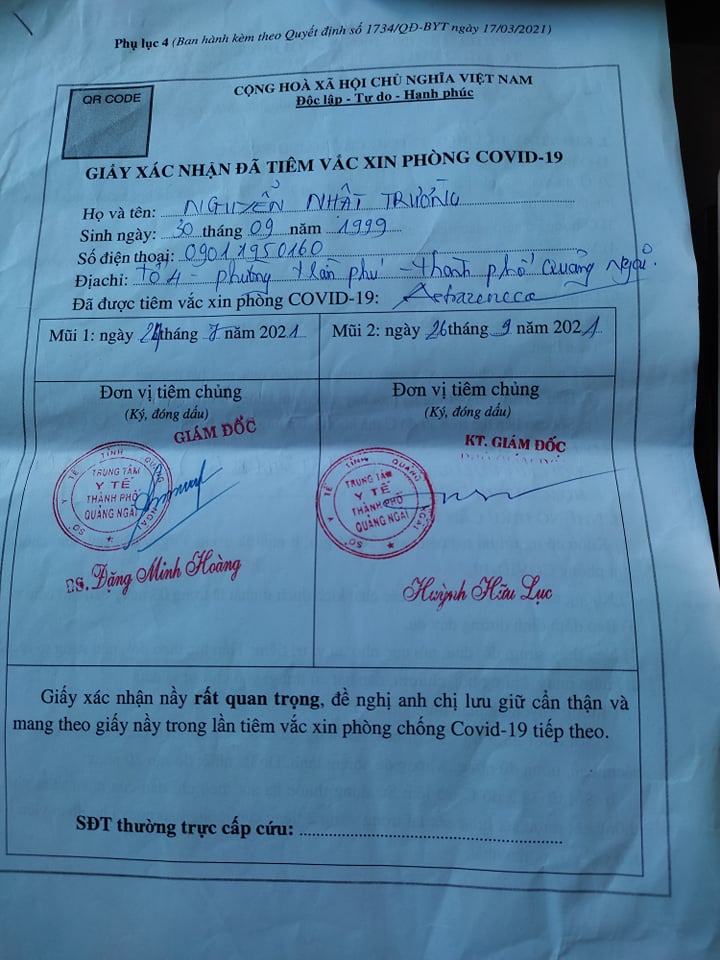 Phụ lục 4 (Ban hành kèm theo Quyết định số 1734/QĐ-BYT ngày 17/03/2021)
QR CODE
CỘNG HOÀ XÃ HỘI CHỦ NGHĨA VIỆT NAM
Độc lập - Tự do - Hạnh phúc
GIẤY XÁC NHẬN ĐÃ TIÊM VẮC XIN PHÒNG COVID-19
Họ và tên: NGUYỄN NHẬT TRƯỜNG
Sinh ngày: 30 tháng 09 năm 1999
Số điện thoại: 09011950160
Địachỉ: Tổ 4 - phường Trần phú - thành phố Quảng Ngãi.
Đã được tiêm vắc xin phòng COVID-19: Astrazeneca
Mũi 1: ngày 24 tháng 7 năm 2021
Mũi 2: ngày 26 tháng 9 năm 2021
Đơn vị tiêm chủng
(Ký, đóng dấu)
GIÁM ĐỐC
SỞ Y TẾ TỈNH QUẢNG NGÃI
TRUNG TÂM
Y TẾ
THÀNH PHỐ
QUẢNG NGÃI
BS. Đặng Minh Hoàng
Đơn vị tiêm chủng
(Ký, đóng dấu)
KT. GIÁM ĐỐC
SỞ Y TẾ TỈNH QUẢNG NGÃI
TRUNG TÂM
Y TẾ
THÀNH PHỐ
QUẢNG NGÃI
Huỳnh Hữu Lục
Giấy xác nhận nầy rất quan trọng, đề nghị anh chị lưu giữ cẩn thận và
mang theo giấy nầy trong lần tiêm vắc xin phòng chống Covid-19 tiếp theo.
SĐT thường trực cấp cứu: